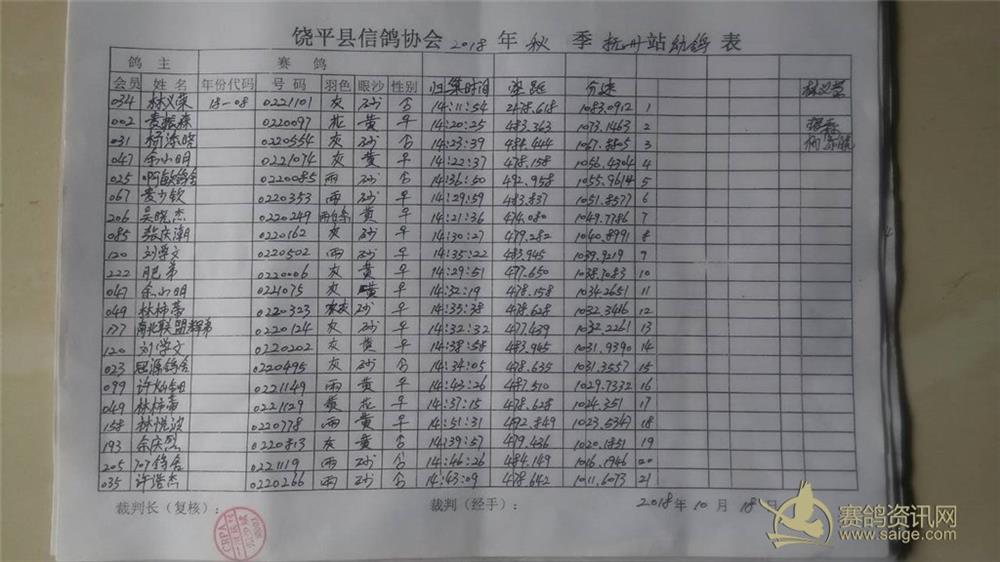 饶平县信鸽协会 2018 年 秋 季 抚州站幼鸽 表
鸽 主 赛 鸽
会员 姓名 年份代码 号码 羽色 眼沙 性别 归巢时间 空距 分速
034 林义荣 18-08 0221101 灰 砂 14:11:54 478.618 1083.0912 1 林义荣
002 麦振森 0220097 花 黄 14:20:25 483.363 1073.1463 2 振森
031 杨添晓 0220554 灰 砂 14:23:39 484.444 1067.8805 3 杨添晓
047 余小明 0221074 灰 黄 14:22:37 478.158 1056.4304 4
025 0220085 雨 砂 14:36:50 492.958 1055.9614 5
067 麦少钦 0220353 雨 砂 14:29:59 483.837 1051.8577 6
206 吴晓杰 0220249 雨白条 黄 14:21:36 474.080 1049.7786 7
085 张庆潮 0220162 灰 砂 14:30:27 479.282 1040.8991 8
120 刘学文 0220502 雨 砂 14:35:22 483.945 1039.9219 9
222 肥弟 0220006 灰 黄 14:29:51 477.650 1038.7083 10
047 余小明 0221075 灰 黄 14:32:19 478.158 1034.2651 11
049 林柿蒂 0220323 灰 砂 14:35:38 478.628 1032.3416 12
177 0220124 灰 砂 14:32:32 477.439 1032.2261 13
120 刘学文 0220202 灰 黄 14:38:58 483.945 1031.9390 14
023 0220495 灰 砂 14:34:05 478.635 1031.3557 15
099 0221149 雨 黄 14:43:26 487.510 1029.7332 16
049 林柿蒂 0221129 黄 花 14:37:15 478.628 1024.351 17
158 林悦波 0220778 雨 黄 14:51:31 492.849 1023.5347 18
193 余庆烈 0220813 灰 黄 14:39:57 479.436 1020.1851 19
205 0221119 雨 砂 14:46:26 484.149 1016.1946 20
035 许浩杰 0220266 雨 砂 14:43:09 478.642 1011.6073 21
裁判长（复核）： 裁判（经手）： 2018 年 10 月 18 日
赛鸽资讯网
www.saige.com